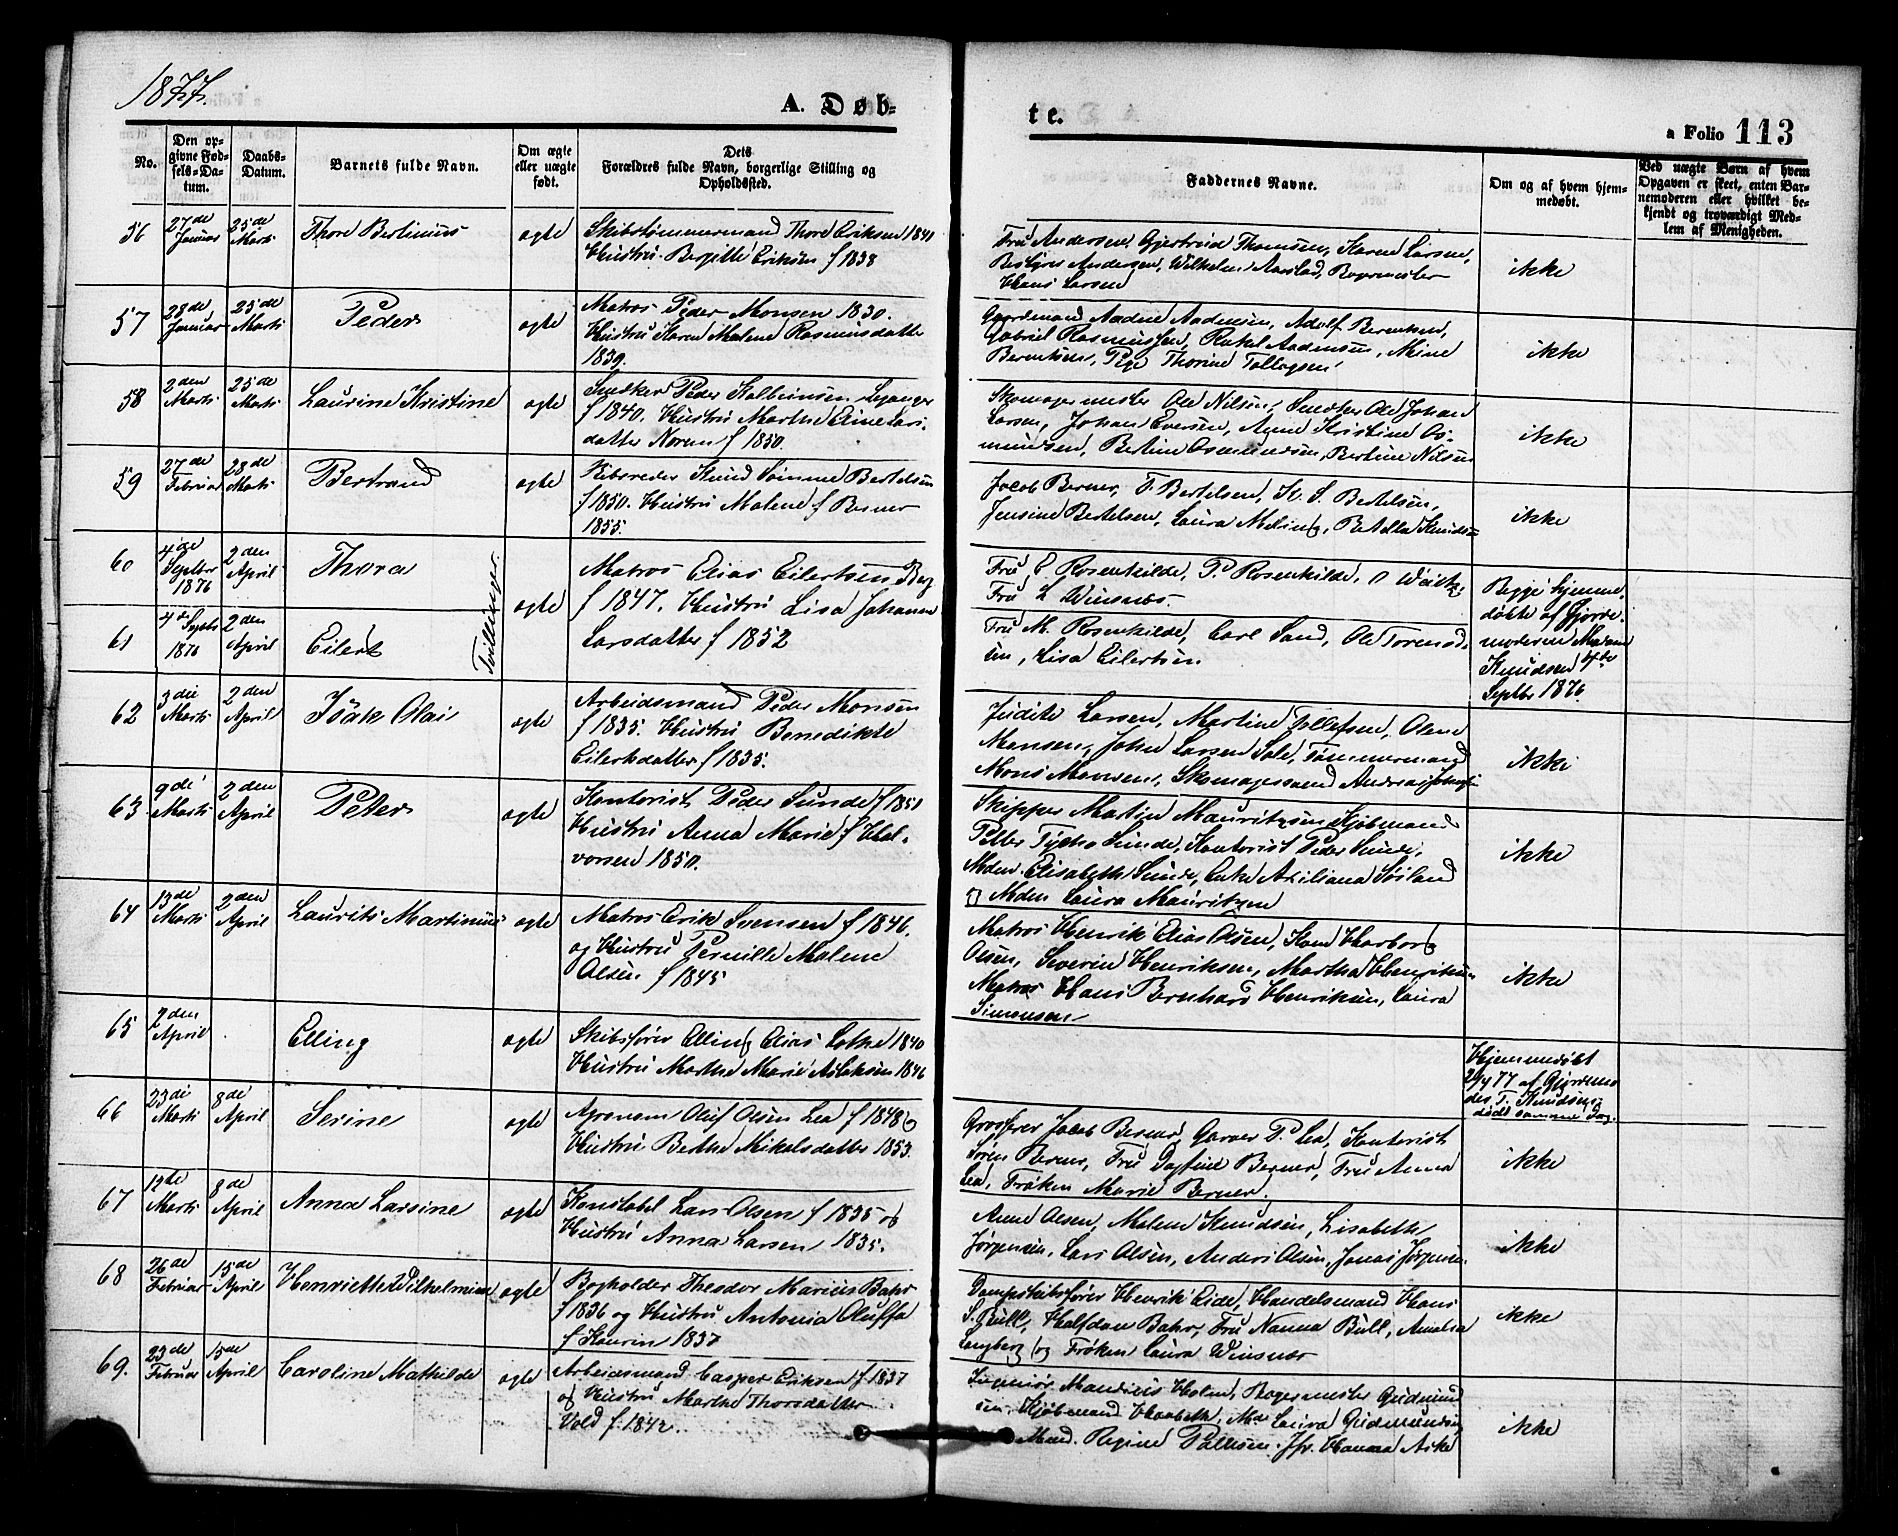 1877.
A. Døb-
te.
a Folio 113
No.
Den op-
givne Fød-
sels-Da-
tum.
Daabs-
Datum.
Barnets fulde Navn.
Om ægte
eller uægte
født.
Dets
Forældres fulde Navn, borgerlige Stilling og
Opholdssted.
Faddernes Navne.
Om og af hvem hjem-
medøbt.
Ved uægte Børn af hvem
Opgaven er skeet, enten Bar-
nemoderen eller hvilket be-
kjendt og troværdigt Med-
lem af Menigheden.
56
27de
Januar
25de
Marts
Thore Bertinius
ægte
Skibstømmermand Thore Eriksen 1841
Hustru Bergitte Eriksen f 1838
Fru Andersen, Gjertruid Thomsen, Karen Larsen,
Andersen, Wilhelm Aarstad, Bogermester
Hans Larsen
ikke
57
28de
Januar
25de
Marts
Peder
ægte
Matros Peder Monsen 1830.
Hustru Karen Malene Rasmusdatter
1839.
Gaardmand Aadne Aadnesen, Adolf Berentsen,
Gabriel Rasmussen, Rakel Aadnesen, Mine
Berentsen, Pige Thorine Tollagsen
ikke
58
2den
Marts
25de
Marts
Laurine Kristine
ægte
Snedker Peder Kolbeinsen
f 1840. Hustru Marthe Eline Lars-
datter Noren f 1850.
Skomagermester Ole Nilsen, Snedker Ole Johan
Larsen, Johan Eversen, Anne Kristine Os-
mundsen, Bertine Osmundsen, Bertine Nilsen
ikke
59
27de
Februar
28de
Marts
Bertrand
ægte
Skibsreder Knud Sømme Bertelsen
f 1850. Hustru Malene f Berner
1855.
Jacob Berner, T. Bertelsen, K. S. Bertelsen,
Jensine Bertelsen, Laura Meling, Petella Knudsen
ikke
60
4de
Septbr
1876
2den
April
Thora
Tvillinger.
ægte
Matros Elias Eilertsen Berg
f 1847. Hustru Lisa Johanne
Larsdatter f 1852
Fru E. Rosenkilde, P. Rosenkilde,
Fru L Winsnæs.
Begge hjemme-
døbte af Gjorde-
moderen Madam
Knudsen 4de
Septbr 1876.
61
4de Septbr
1876
2den
April
Eilert
Fru M. Rosenkilde, Carl Sand, Ole Tormod-
sen, Lisa Eilertsen
62
3die
Marts
2den
April
Isak Olai
ægte
Arbeidsmand Peder Monsen
f 1835. Hustru Benedikte
Eilertsdatter f 1835.
Judite Larsen, Martine Tollefsen, Olene
Monsen, John Larsen Sele, Tømmermand
Mons Monsen, Skomagersvend Andreas
ikke
63
9de
Marts
2den
April
Peter
ægte
Kontorist Peder Sunde f 1851
Hustru Anna Marie f Hal-
vorsen 1850.
Skipper Martin Mauritzen, Kjøbmand
Petter Tycho Sunde, Kontorist Peder Sunde,
Mdm. Elisabeth Sunde, Enke Axiliana Soiland
og Mdm Laura Mauritzen
ikke
64
13de
Marts
2den
April
Laurits Martinius
ægte
Matros Erik Svensen f 1846.
og Hustru Pernille Malene
Olsen f 1845
Matros Henrik Elias Olsen, Kone Harborg
Olsen, Severin Henriksen, Martha Henriksen
Matros Hans Bernhard Henriksen, Laura
Simonsen
ikke
65
2den
April
Elling
ægte
Skibsfører Elling Elias Lothe 1840
Hustru Marthe Marie Aslaksen 1846
Hjemmedøbt
2/4 77 af Gjordemo-
des T. Knudsen;
død samme Dag.
66
23de
Marts
8de
April
Serine
ægte
Agronom Oluf Olsen Lea f 1848 og
Hustru Bertha Mikalsdatter 1853.
Grosserer Jacob Berner, Garver P. Lea, Kontorist
Søren Berner, Fru Dagfine Berner, Fru Anna
Lea, Frøken Marie Berner.
ikke
67
12te
Marts
8de
April
Anna Larsine
ægte
Konstabel Lars Olsen f 1835 og
Hustru Anna Larsen 1835.
Anne Olsen, Malene Knudsen, Lisabeth
Jørgensen, Lars Olsen, Anders Olsen, Jonas Jørgensen
ikke
68
26de
Februar
15de
April
Henriette Wilhelmine
ægte
Bogholder Theodor Marius Bahr
f 1836 og Hustru Antonia Oluffa
f Kaurin 1837
Dampskibsfører Henrik Eide, Handelsmand Hans
S. Bull, Halfdan Bahr, Fru Nanna Bull, Amalia
Langberg og Frøken Laura Winsnæs
ikke
69.
23de
Februar
15de
April
Caroline Mathilde
ægte
Arbeidsmand Casper Eriksen f 1837
og Hustru Marthe Thorsdatter
Vold f. 1842.
Ingeniør Holm, Bogermester Gudmund-
sen, Kjøbmand Haabeth, Md. Laura Gudmundsen
Mad. Regine Pallesen, Jfr. Hanna Aske
ikke